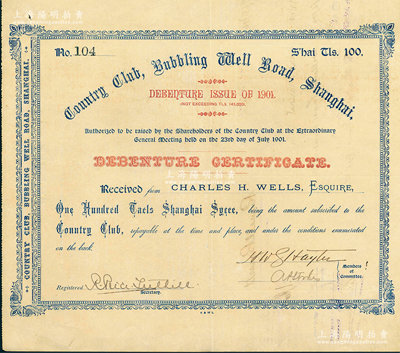 上海陽明拍賣
No. 104
S'hai Tls. 100.
Country Club, Bubbling Well Road, Shanghai.
DEBENTURE ISSUE OF 1901.
(NOT EXCEEDING TLS. 140,000)
Authorized to be raised by the Shareholders of the Country Club at the Extraordinary
General Meeting held on the 23rd day of July 1901.
DEBENTURE CERTIFICATE.
Received from CHARLES H. WELLS, ESQUIRE,
One Hundred Taels Shanghai Sycee, being the amount subscribed to the
Country Club, repayable at the time and place, and under the conditions enumerated
on the back.
Members of Committee.
Registered
Secretary.
COUNTRY CLUB, BUBBLING WELL ROAD, SHANGHAI.
上海陽明拍賣